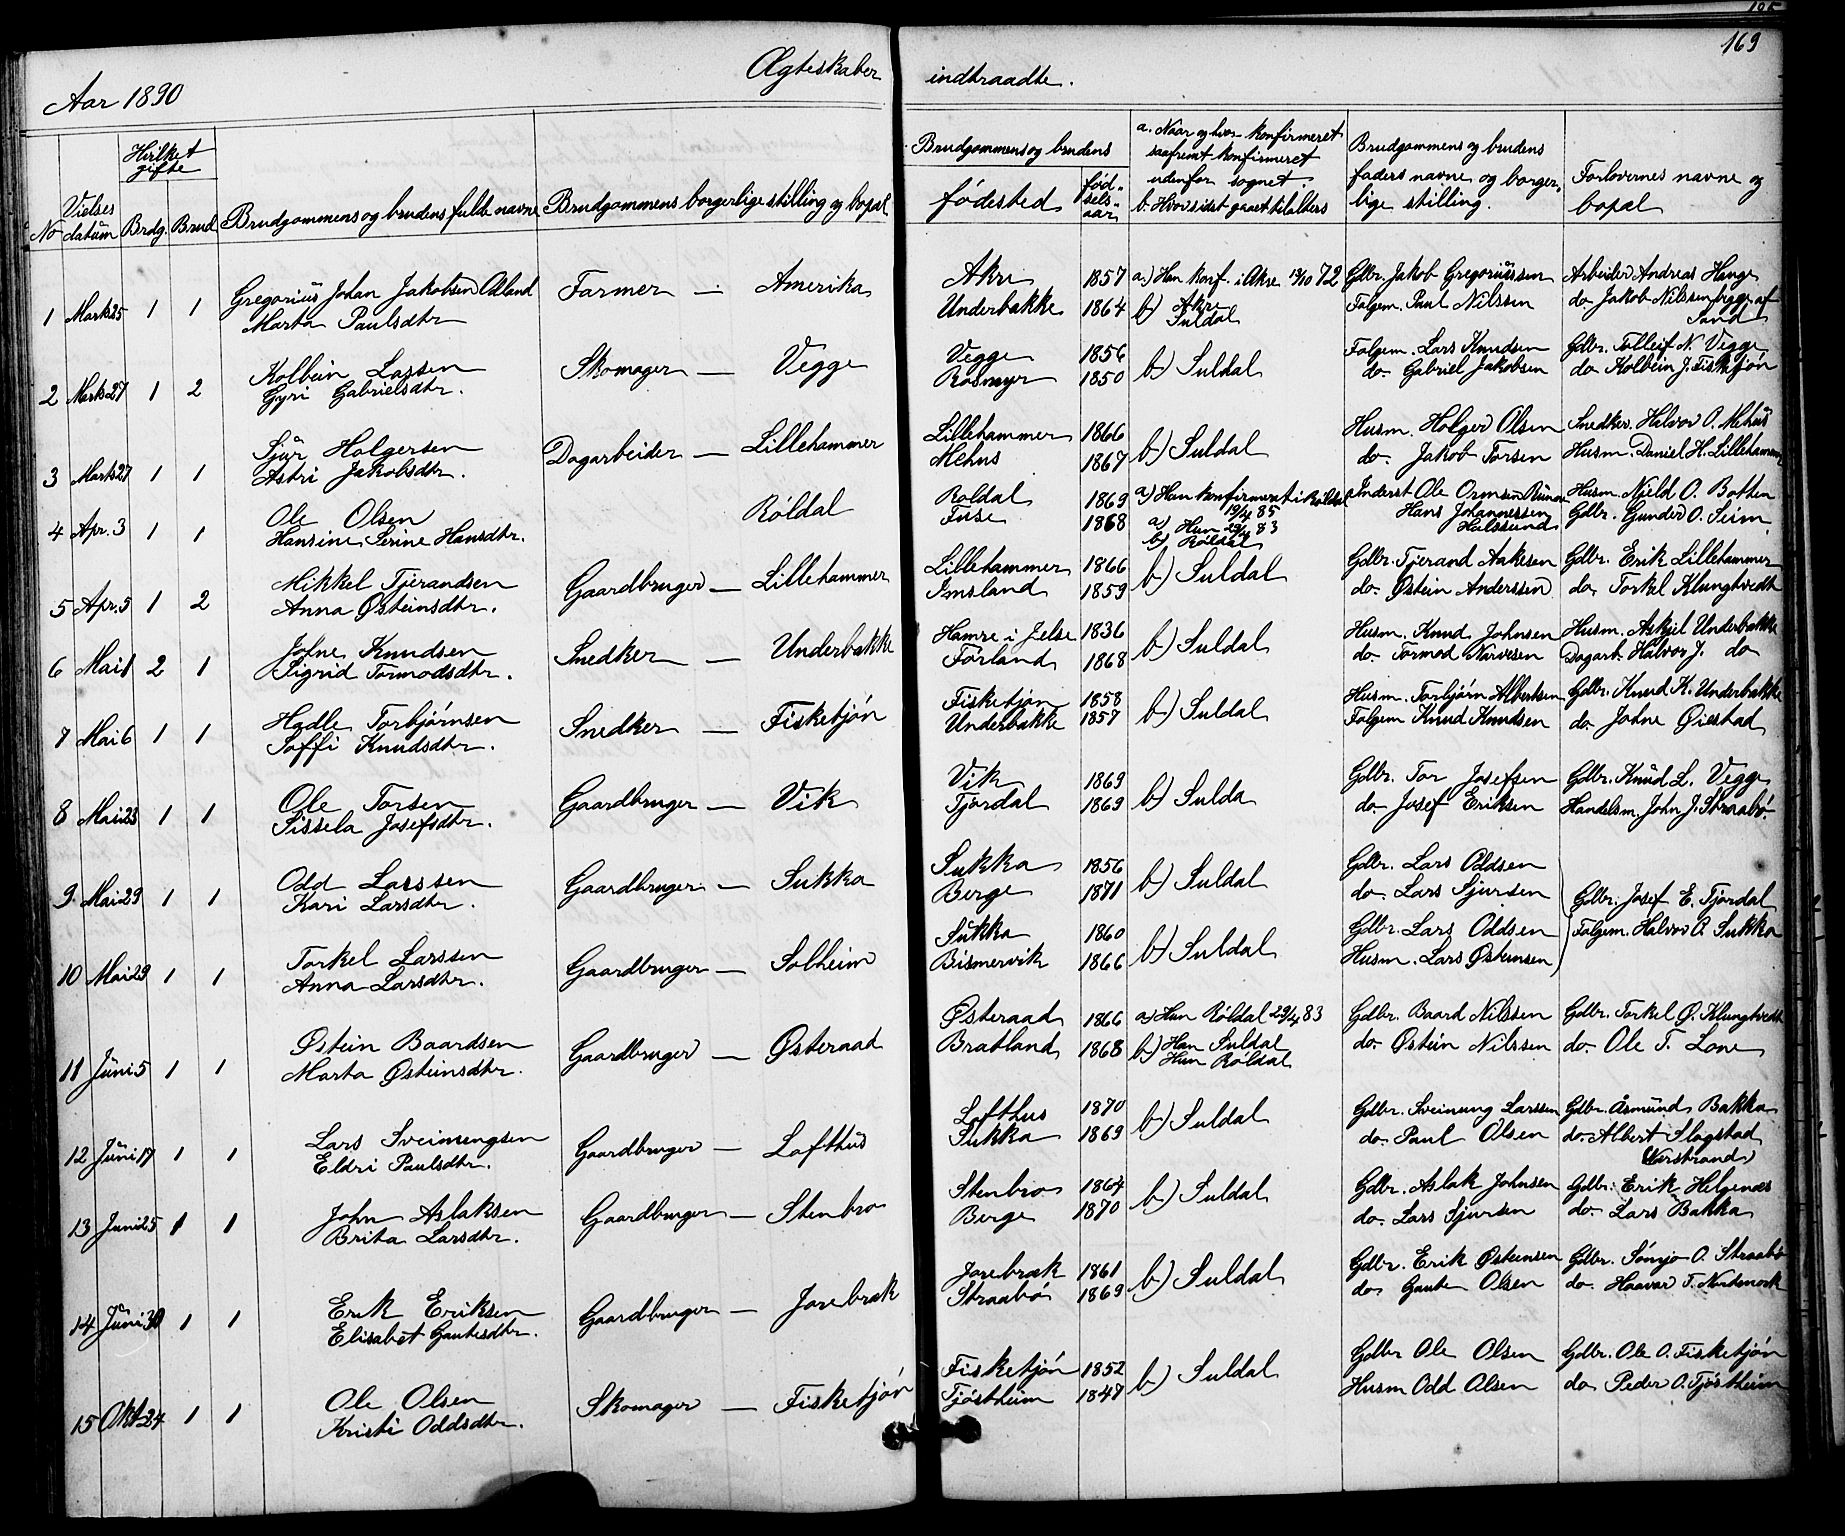 169
Aar 1890
Ægteskaber indtraadte.
No
Vielses datum
Hvilket gifte
Brdg. Brud
Brudgommens og brudens fulde navne
Brudgommens borgerlige stilling og bopæl
Brudgommens og brudens
fødested
fødselsaar
a. Naar og hvor konfirmeret
saafremt konfirmeret
udenfor sognet.
b. Hvor sidst gaaet til alters
Brudgommens og brudens
faders navne og borger-
lige stilling.
Forlovernes navne og
bopæl
1 Marts 25 1 1 Gregorius Johan Jakobsen Ødland Farmer — Amerika Akre 1857 a) Han konf. i Akre 13/10 72 Gdbr. Jakob Gregoriussen Arbeider Andreas Hauge
Marta Paulsdtr Underbakke 1864 b) Akre Suldal Folgem. Paul Nilssen do Jakob Nilssen begge af Sand
2 Marts 27 1 2 Kolbein Lassen Skomager — Vegge Vegge 1856 b) Suldal Folgem. Lars Knudsen Gdbr. Tolleif N. Vegge
Gyri Gabrielsdtr. Rosmyr 1850 do. Gabriel Jakobsen do Kolbein J. Fisketjøn
3 Marts 27 1 1 Sjur Holgersen Dagarbeider — Lillehammer Lillehammer 1866 b) Suldal Husm. Holger Olsen Snedker Halvor O. Mehus
Astri Jakobsdtr. Mehus 1867 do. Jakob Torsen Husm. Daniel H. Lillehammer
4 Apr. 3 1 1 Ole Olsen Røldal Roldal 1869 a) Han konfirmeret i Røldal 19/4 85 Inderst Ole Ormsen Husm. Njeld O. Botten
Hansine Serine Hansdtr. Fuse 1868 a) Hun 29/4 83 b) Røldal Hans Johannessen Halssund Gdbr. Gunder O. Seim
5 Apr. 5 1 2 Mikkel Tjerandsen Gaardbruger — Lillehammer Lillehammer 1866 b) Suldal Gdbr. Tjerand Aakesen Gdbr. Erik Lillehammer
Anna Østeinsdtr. Imsland 1859 do. Østein Anderssen do Torkel Klungtvedt
6 Mai 1 2 1 Johne Knudsen Snedker — Underbakke Hamre i Jelse 1836 b) Suldal Husm. Knud Johnsen Husm. Askjel Underbakke
Sigrid Tormodsdtr. Førland 1868 do. Tormod Narvesen Dagarb. Halvor J. do
7 Mai 6 1 1 Hadle Torbjørnsen Snedker — Fisketjøn Fisketjøn 1858 b) Suldal Husm. Torbjørn Albertsen Gdbr. Knud K. Underbakke
Soffi Knudsdtr. Underbakke 1857 Folgem Knud Knudsen do. Johne Øiestad
8 Mai 23 1 1 Ole Torsen Gaardbruger — Vik Vik 1869 b) Sulda Gdbr. Tor Josefsen Gdbr. Knud L. Vegge
Sissela Josefsdtr. Tjørdal 1869 do. Josef Eriksen Handelsm. John J. Straabø
9. Mai 29 1 1 Odd Larssen Gaardbruger — Sukka Sukka 1856 b) Suldal Gdbr. Lars Oddsen
Kari Larsdtr. Berge 1871 do. Lars Sjursen Gdbr. Josef E. Tjørdal
10 Mai 29 1 1 Torkel Larssen Gaardbruger — Solheim Sukka 1860 b) Suldal Gdbr. Lars Oddsen Folgem. Halvor O. Sukka
Anna Larsdtr. Bismervik 1866 Husm. Lars Østensen
11 Juni 5 1 1 Østein Baardsen Gaardbruger — Østeraad Østeraad 1866 a) Hun Røldal 29/4 83 Gdbr. Baard Nilssen Gdbr. Torkel Ø. Klungtvedt
Marta Østeinsdtr. Bratland 1868 b) Han Suldal Hun Røldal do. Østein Nilssen do. Ole T. Lone
12 Juni 17 1 1 Lars Sveinungsen Gaardbruger — Lofthus Lofthus 1870 b) Suldal Gdbr. Sveinung Larssen Gdbr. Åsmund Bakka
Eldri Paulsdtr. Sukka 1869 do. Paul Olsen do. Albert Slogstad (Nerstrand)
13 Juni 25 1 1 John Aslaksen Gaardbruger — Stenbro Stenbro 1864 b) Suldal Gdbr. Aslak Johnsen Gdbr. Erik Helgenæs
Brita Larsdtr. Berge 1870 do. Lars Sjursen do. Lars Bakka
14 Juni 30 1 1 Erik Eriksen Gaardbruger — Jorebræk Jorebræk 1861 b) Suldal Gdbr. Erik Østensen Gdbr. O. Straabø
Elisabet Gautesdtr. Straabø 1869 do Gaute Olsen do. Haavar T. Nordmork
15 Okt 24 1 1 Ole Olsen Skomager — Fisketjøn Fisketjøn 1852 b) Suldal Gdbr Ole Olsen Gdbr. Ole O. Fisketjøn
Kristi Oddsdtr. Tjøstheim 1847 Husm Odd Olsen do Peder O. Tjøstheim